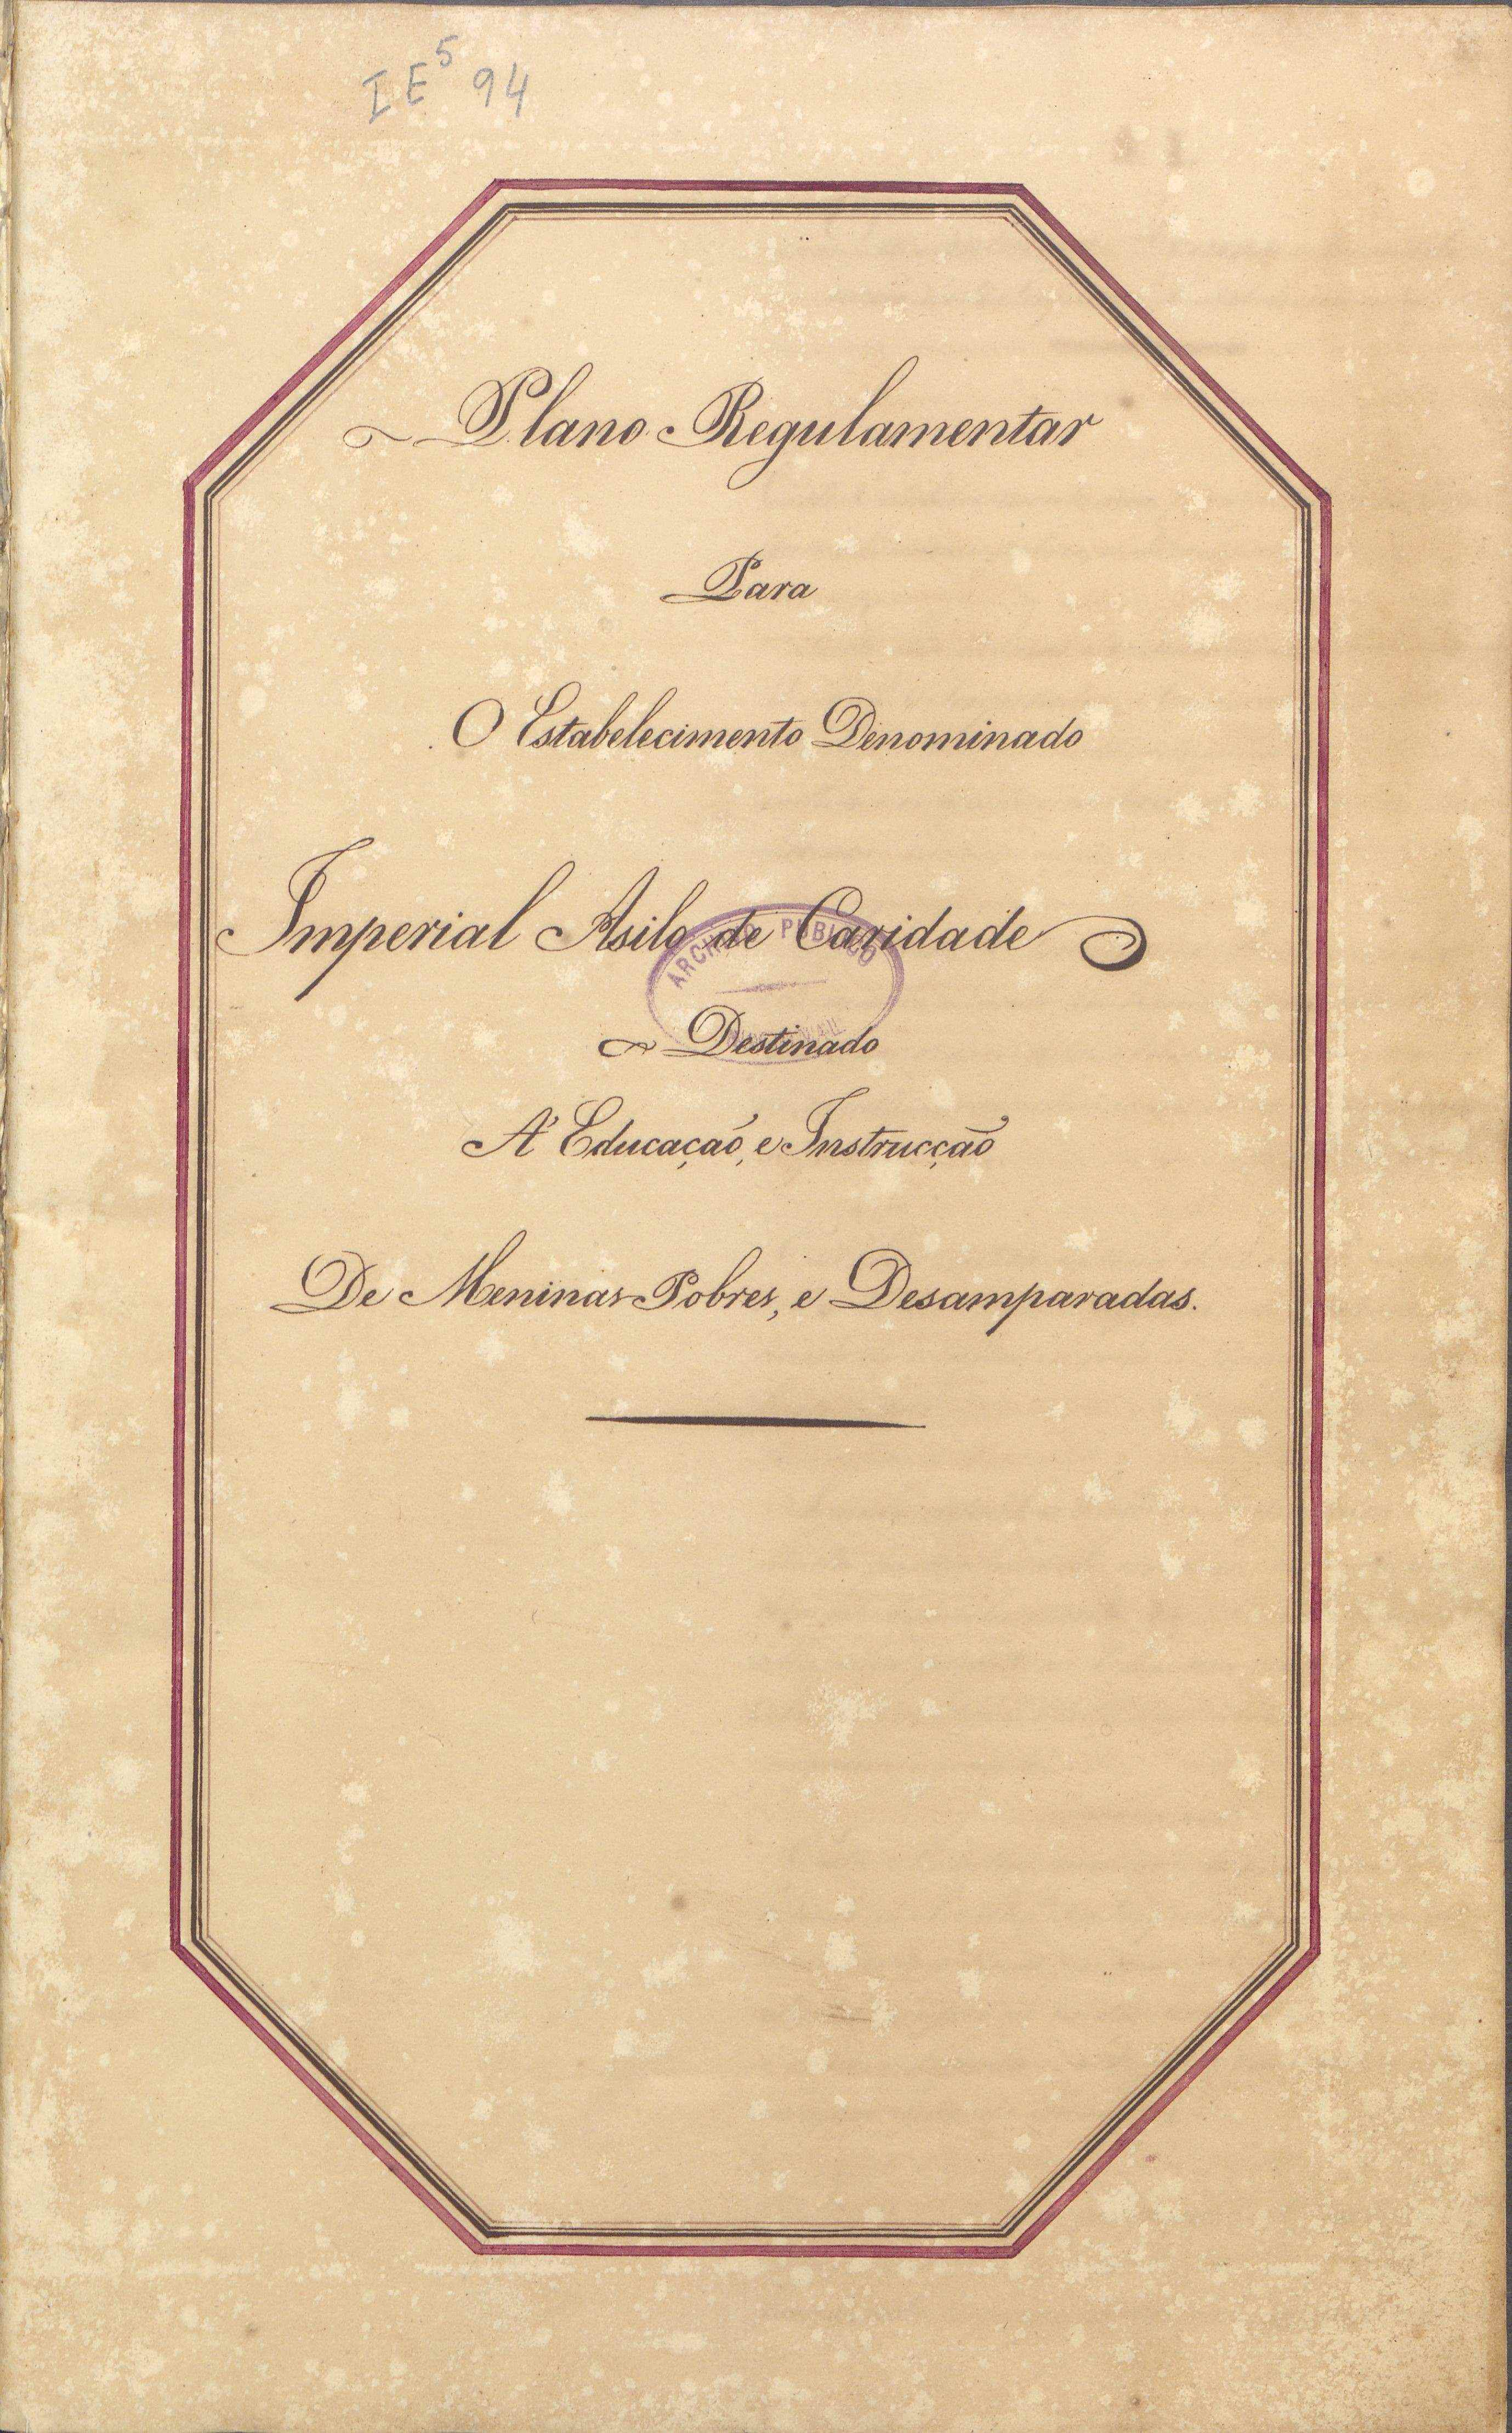 IE⁵ 94
Plano Regulamentar
Para
O Estabelecimento Denominado
Imperial Asilo de Caridade
ARCHIVO PUBLICO
Destinado
A' Educação, e Instrucção
De Meninas Pobres, e Desamparadas.